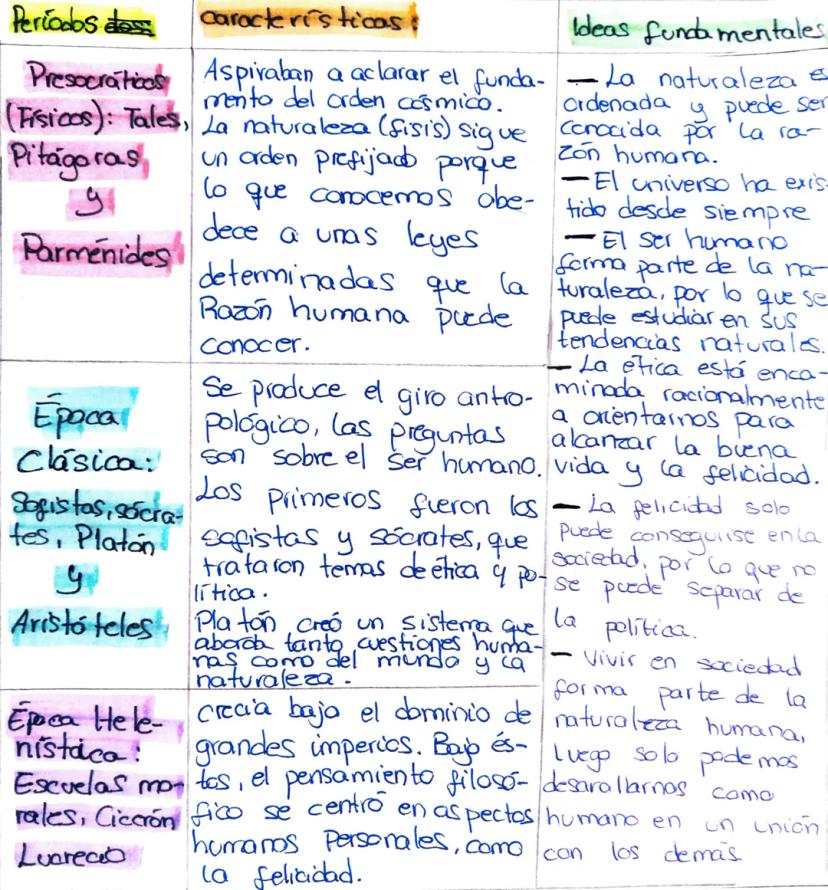 Períodos
Características:
Ideas fundamentales
Presocráticos
(Físicos): Tales,
Pitágoras
y
Parménides
Aspiraban a aclarar el funda-
mento del orden cósmico.
La naturaleza (fisis) sigue
un orden prefijado porque
lo que conocemos obe-
dece a unas leyes
determinadas que la
Razón humana puede
conocer.
Época
Clásica:
Sofistas, sócra-
tes, Platón
y
Aristóteles
Se produce el giro antro-
pológico, las preguntas
son sobre el ser humano.
Los primeros fueron los
sofistas y sócrates, que
trataron temas de ética y po-
lítica.
Platón creó un sistema que
aborda tanto cuestiones huma-
nas como del mundo y la
naturaleza.
Época Hele-
nística:
Escuelas mo-
rales, Cicerón
Lucrecio
Grecia bajo el dominio de
grandes imperios. Bajo és-
tos, el pensamiento filosó-
fico se centró en aspectos
humanos personales, como
la felicidad.
— La naturaleza es
ordenada y puede ser
conocida por la ra-
zón humana.
— El universo ha exis-
tido desde siempre
— El ser humano
forma parte de la na-
turaleza, por lo que se
puede estudiar en sus
tendencias naturales.
— La ética está enca-
minada racionalmente
a orientarnos para
alcanzar la buena
vida y la felicidad.
— La felicidad solo
puede conseguirse en la
sociedad, por lo que no
se puede separar de
la política.
— Vivir en sociedad
forma parte de la
naturaleza humana,
luego solo podemos
desarallarnos como
humano en un unión
con los demás